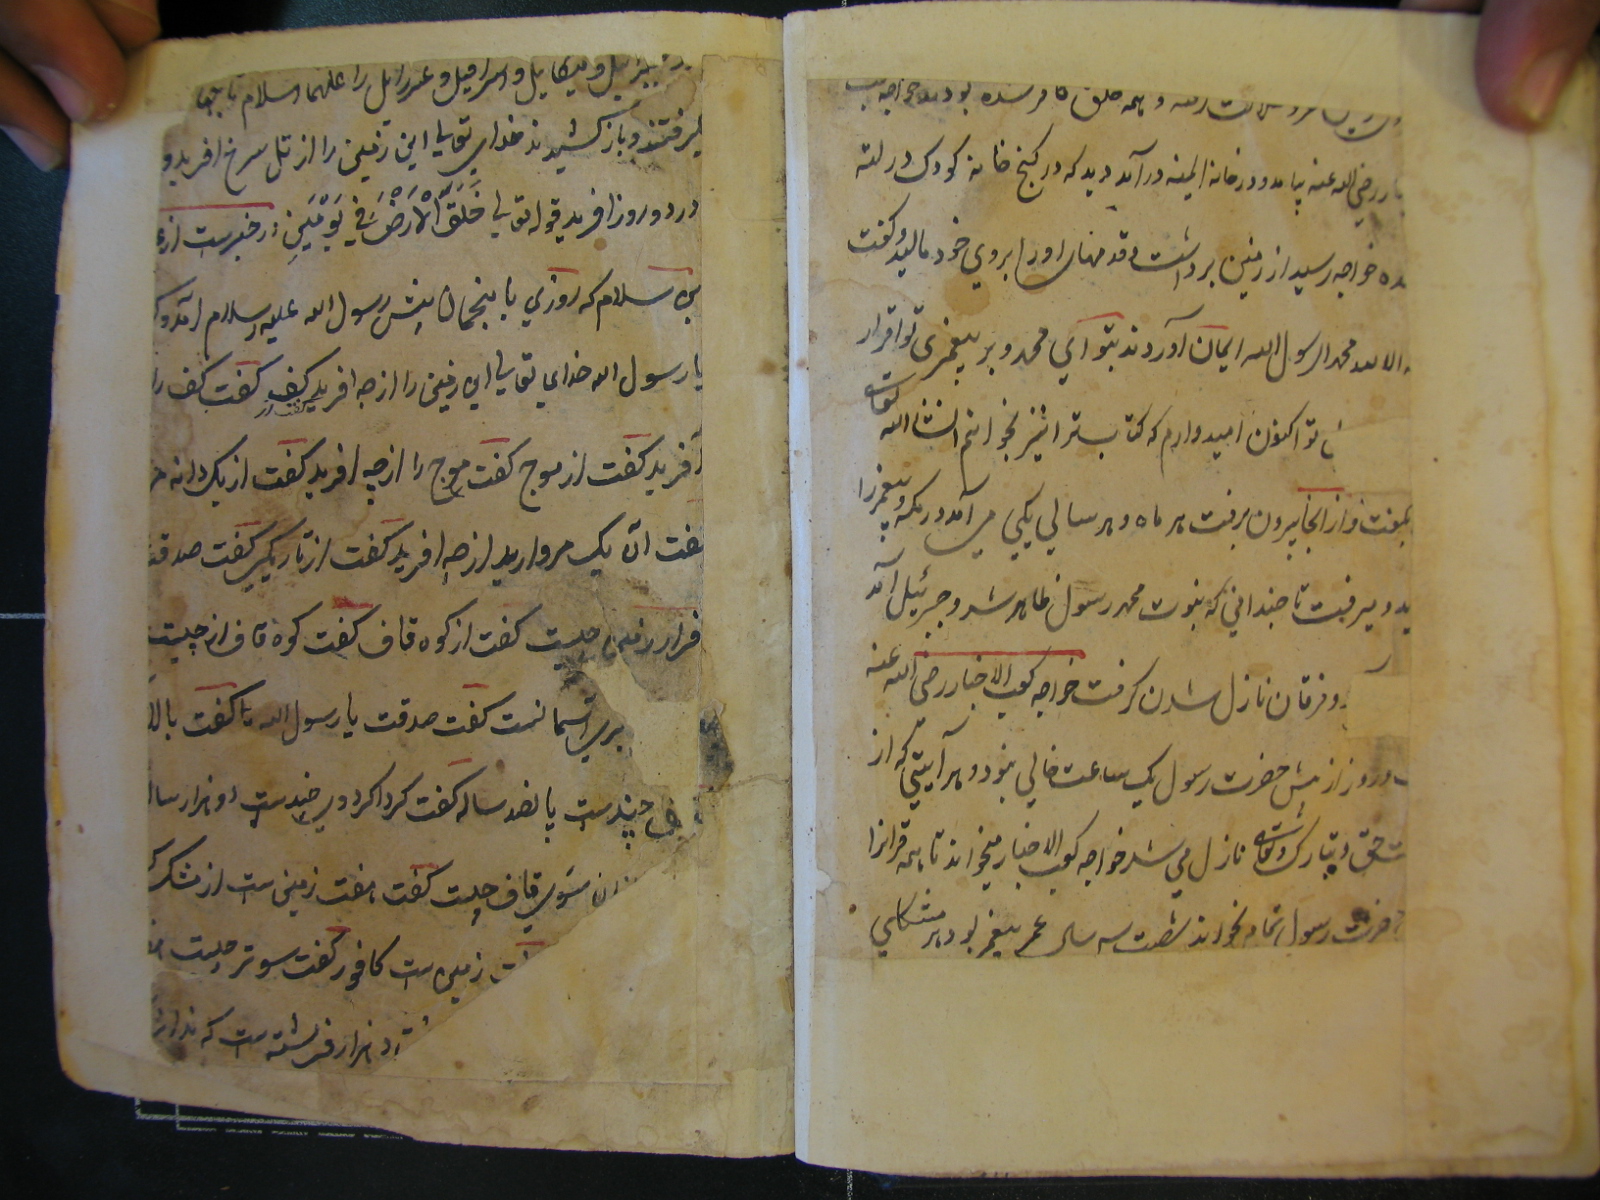 و همه خلق کافر شده بودند خواجه
رضی الله عنه بیامد و در خانه آمنه درآمد دید که در کنج خانه کودک در لته
خواجه رسید از زمین برداشت و قدمهای او را بروی خود مالید و گفت
الا الله محمد الرسول الله ایمان آوردند بتو ای محمد و بر پیغمبری تو اقرار
تو اکنون امیدوارم که کتابت را نیز بخوانم انشا الله تعالی
بگفت و از انجا بیرون برفت هر ماه و هر سالی یکی می آمد در مکه و پیغمبر را
ید و میرفت تا چندانی که نبوت محمد رسول ظاهر شد و جبرئیل آمد
و فرقان نازل شدن گرفت خواجه کعب الاخبار رضی الله عنه
و روز از پیش حضرت رسول یک ساعت خالی نبود و هر آیتی که از
حق تبارک و تعالی نازل می شد خواجه کعب الاخبار میخواند تا همه قرانرا
حضرت رسول تمام بخواند شصت سه سال عمر پیغمبر بود هر مشکلی
جبرئیل و میکایل و اسرافیل و عزرایل را علیهم السلام تا
گرفتند و باز کشیدند خدای تعالی این زمین را از تل سرخ افرید و
در دو روز افرید قوله تعالی خَلَقَ الْاَرْضَ فِی یَوْمَیْنِ در خبرست از
سلام که روزی با پنجمان پیش رسول الله علیه السلام آمد و
یا رسول الله خدای تعالی این زمین را از چه افرید گفت از کف گفت کف را
آفرید گفت از موج گفت موج را از چه افرید گفت از یک دانه
گفت آن یک مروارید از چه افرید گفت از تاریکی گفت صدقت
قرار زمین چیست گفت از کوه قاف گفت کوه قاف از چیست
آسمانست گفت صدقت یا رسول الله گفت بالا
چندست پانصد ساله گفت گرداگرد وی چندست دو هزار سال
سوی قاف چیست گفت هفت زمینی ست از مشک
زمین ست کافور گفت سوتر چیست
هزار فرشته ست که